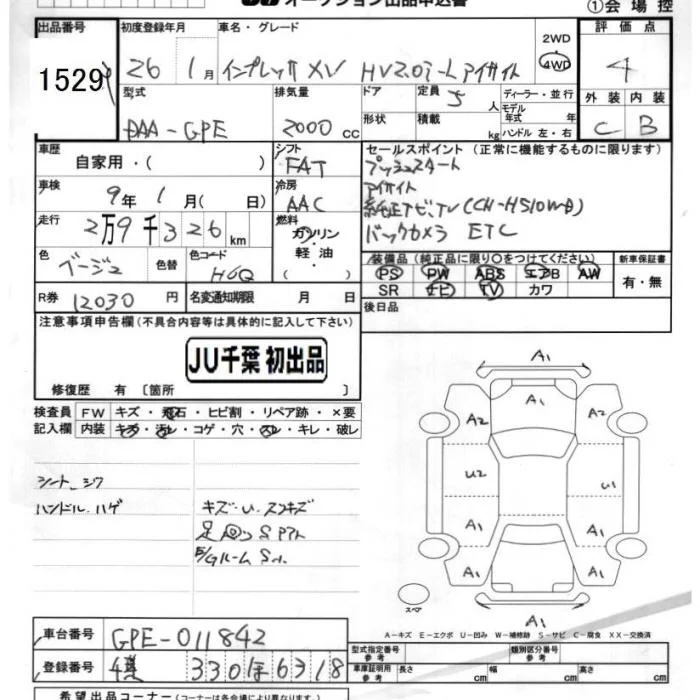 JU オークション出品申込書
①会場控
出品番号 初度登録年月 車名・グレード 評価点
1529 26 1月 インプレッサ XV HV2.0i-L アイサイト 2WD 4WD 4
型式 排気量 ドア 定員 ディーラー・並行 外装 内装
DAA-GPE 2000cc 形状 積載 5人 kg モデル年式 年 ハンドル 左・右 C B
車歴 自家用・( ) シフト FAT セールスポイント (正常に機能するものに限ります)
プッシュスタート
車検 9年 1月( 日) 冷房 AAC アイサイト
純正ナビ、TV(CH-H510WD)
走行 2万9千326km 燃料 ガソリン 軽油 バックカメラ ETC
色 ベージュ 色替 色コード H6Q 装備品(純正品に限り○をつけてください) 新車保証書
PS PW ABS エアB AW 有・無
SR ナビ TV カワ
R券 12030円 名変通知期限 月 日 後日品
注意事項申告欄(不具合内容等は具体的に記入して下さい)
JU千葉 初出品
修復歴 有 〔箇所 〕
検査員 FW キズ・飛石・ヒビ割・リペア跡・×要
記入欄 内装 キズ・汚レ・コゲ・穴・スレ・キレ・破レ
シート シワ
ハンドル ハゲ キズ・U・スレキズ
足回り Sアト
E/Gルーム S
A1
A1
A2 A2
U2 U1
A1 A1
A1 A1
A1
A1
スペア
A-キズ E-エクボ U-凹み W-補修跡 S-サビ C-腐食 XX-交換済
車台番号 GPE-011842
型式指定番号 参考 類別区分番号 参考
登録番号 330ほ6318
車庫証明用 参考 長さ cm 幅 cm 高さ cm
希望出品コーナー(コーナーは各会場により異なります。)